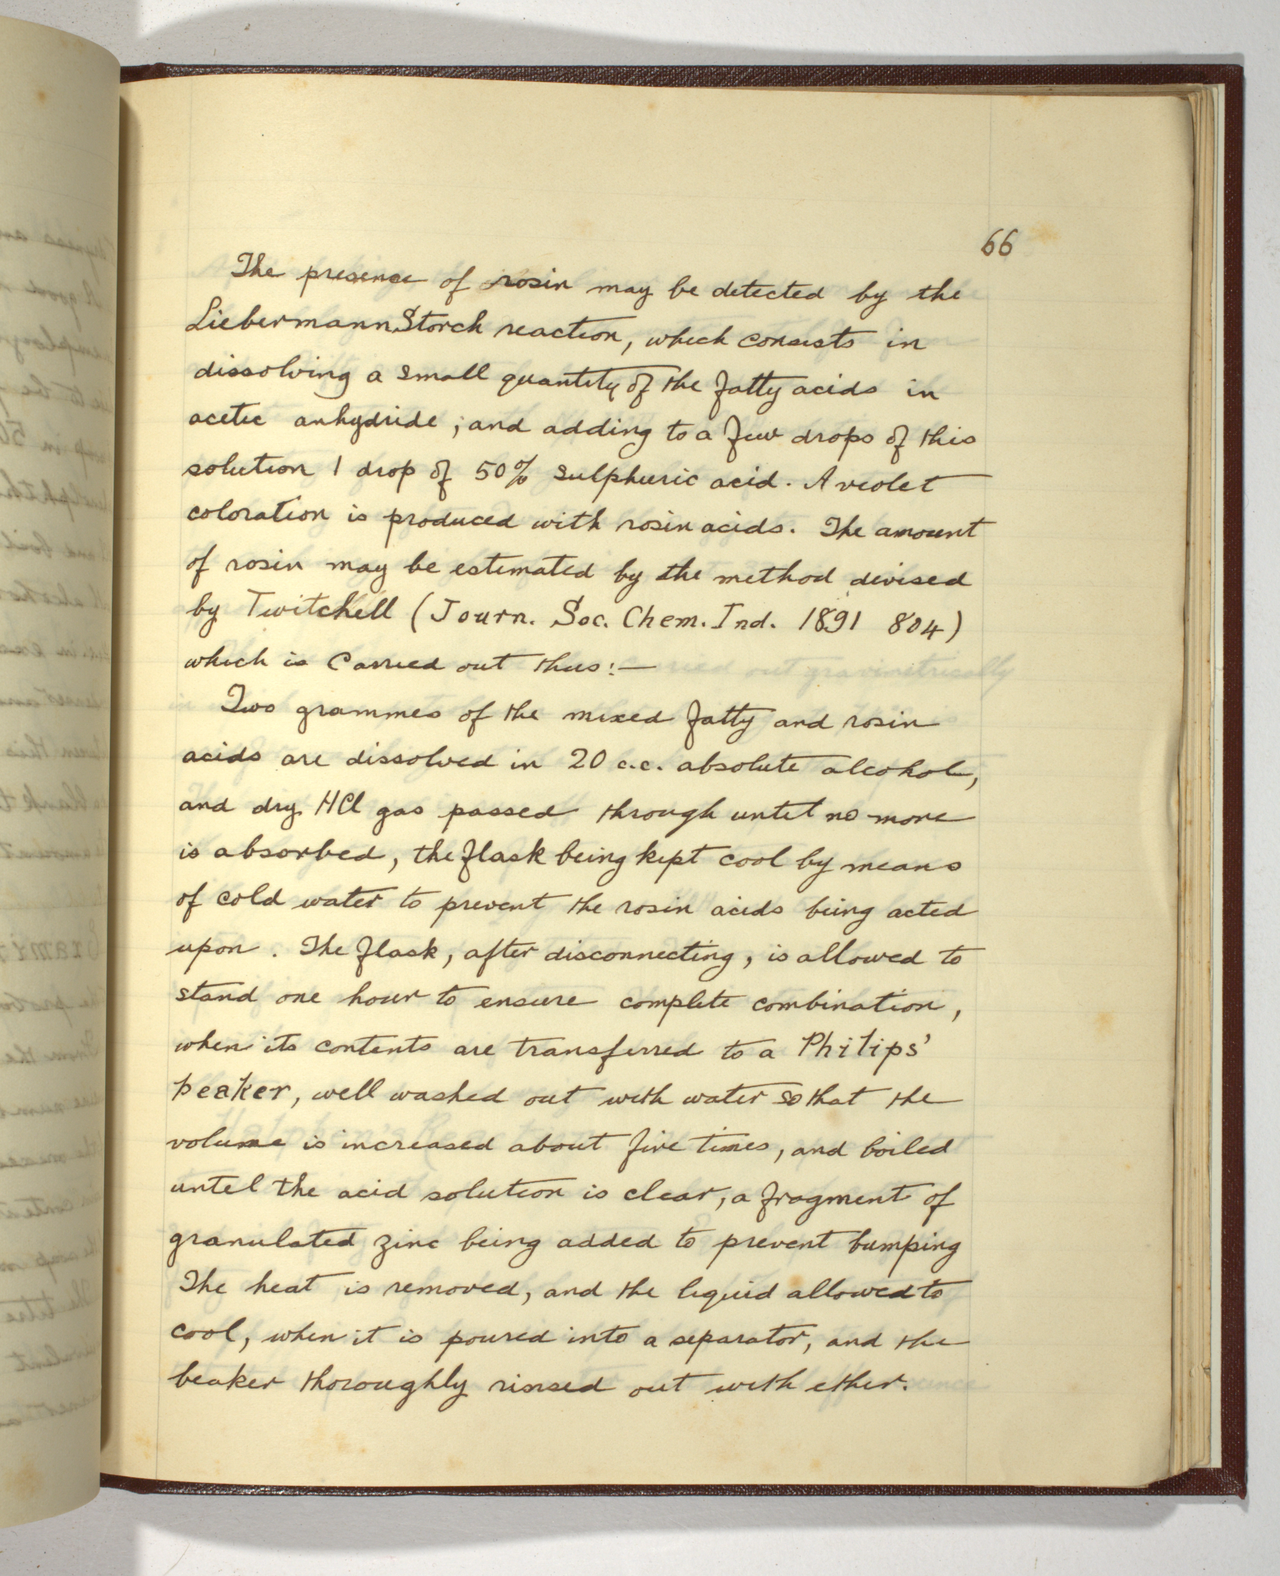 66
The presence of rosin may be detected by the
Liebermann Storch reaction, which consists in
dissolving a small quantity of the fatty acids in
acetic anhydride ; and adding to a few drops of this
solution 1 drop of 50% sulphuric acid. A violet
coloration is produced with rosin acids. The amount
of rosin may be estimated by the method devised
by Twitchell (Journ. Soc. Chem. Ind. 1891 804)
which is carried out thus:—
Two grammes of the mixed fatty and rosin
acids are dissolved in 20 c.c. absolute alcohol,
and dry HCl gas passed through until no more
is absorbed, the flask being kept cool by means
of cold water to prevent the rosin acids being acted
upon. The flask, after disconnecting, is allowed to
stand one hour to ensure complete combination,
when its contents are transferred to a Philips'
beaker, well washed out with water so that the
volume is increased about five times, and boiled
until the acid solution is clear, a fragment of
granulated zinc being added to prevent bumping
The heat is removed, and the liquid allowed to
cool, when it is poured into a separator, and the
beaker thoroughly rinsed out with ether.